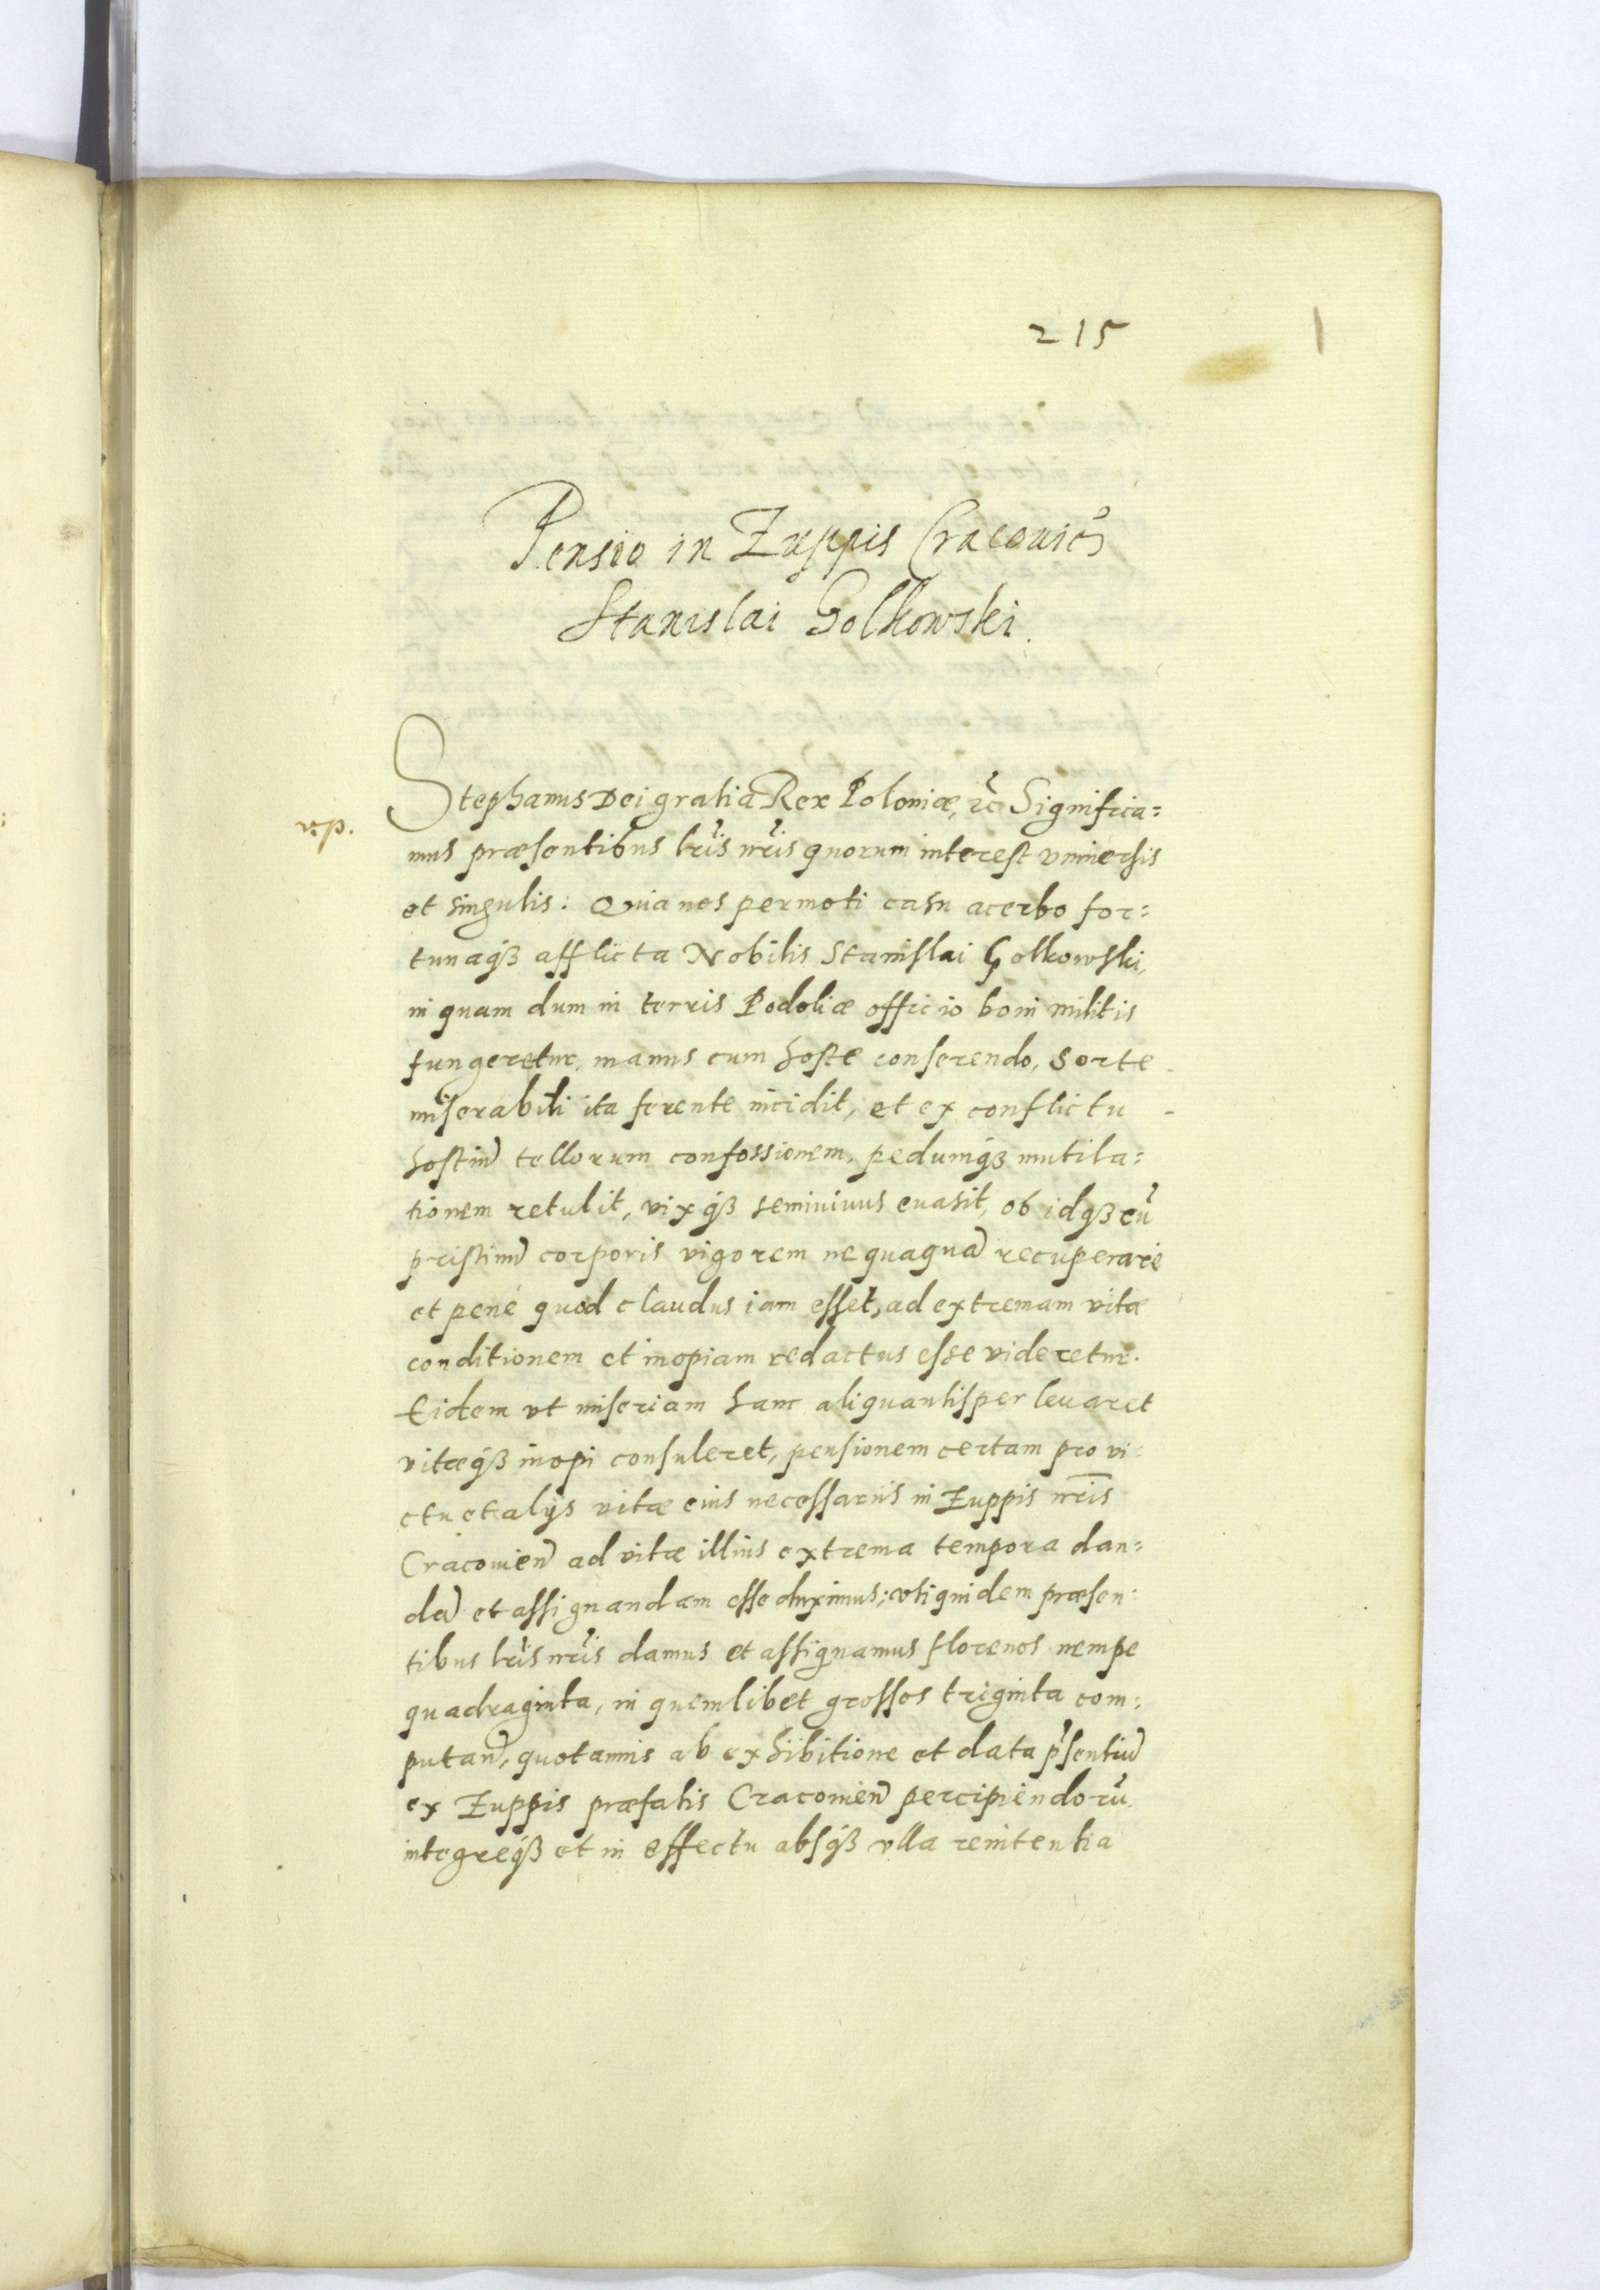 215
1
Pensio in Zuppis Cracouien
Stanislai Golkowski.
v.p.
Stephanus Dei gratia Rex Poloniæ, etc Significa=
mus præsentibus lris nris quorum interest vniuersis
et singulis: Quia nos permoti casu acerbo for=
tunaq3 afflicta Nobilis Stanislai Golkowski,
in quam dum in terris Podoliæ officio boni militis
fungeretur, manus cum hoste conserendo, sorte
miserabili ita ferente incidit, et ex conflictu
hostiũ tellorum confossionem, pedumq3 mutila=
tionem retulit, vixq3 seminiuus euasit, ob idq3 cũ
pristinũ corporis vigorem nequaquã recuperare
et pene quod claudus iam esset, ad extremam vitæ
conditionem et inopiam redactus esse videretur.
Eidem vt miseriam hanc aliquantisper leuaret
vitæq3 inopi consuleret, pensionem certam pro vi=
ctu et alijs vitæ eius necessariis in Zuppis nris
Cracouien ad vitæ illius extrema tempora dan=
dã et assignandam esse duximus; vti quidem præsen=
tibus lris nris damus et assignamus florenos nempe
quadraginta, in quemlibet grossos triginta com=
putan, quotannis ab exhibitione et data pñsentiũ
ex Zuppis præfatis Cracouien percipiendorũ
integreq3 et in effectu absq3 vlla renitentia